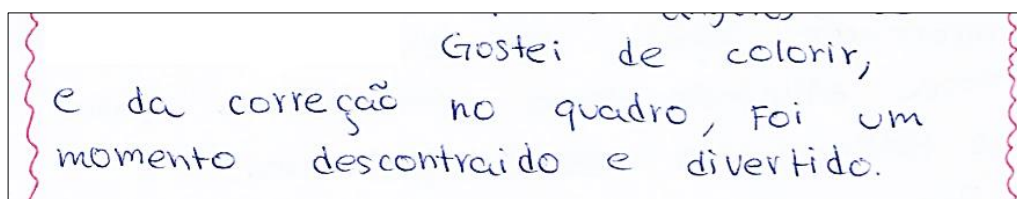 Gostei de colorir,
e da correção no quadro, Foi um
momento descontraido e divertido.